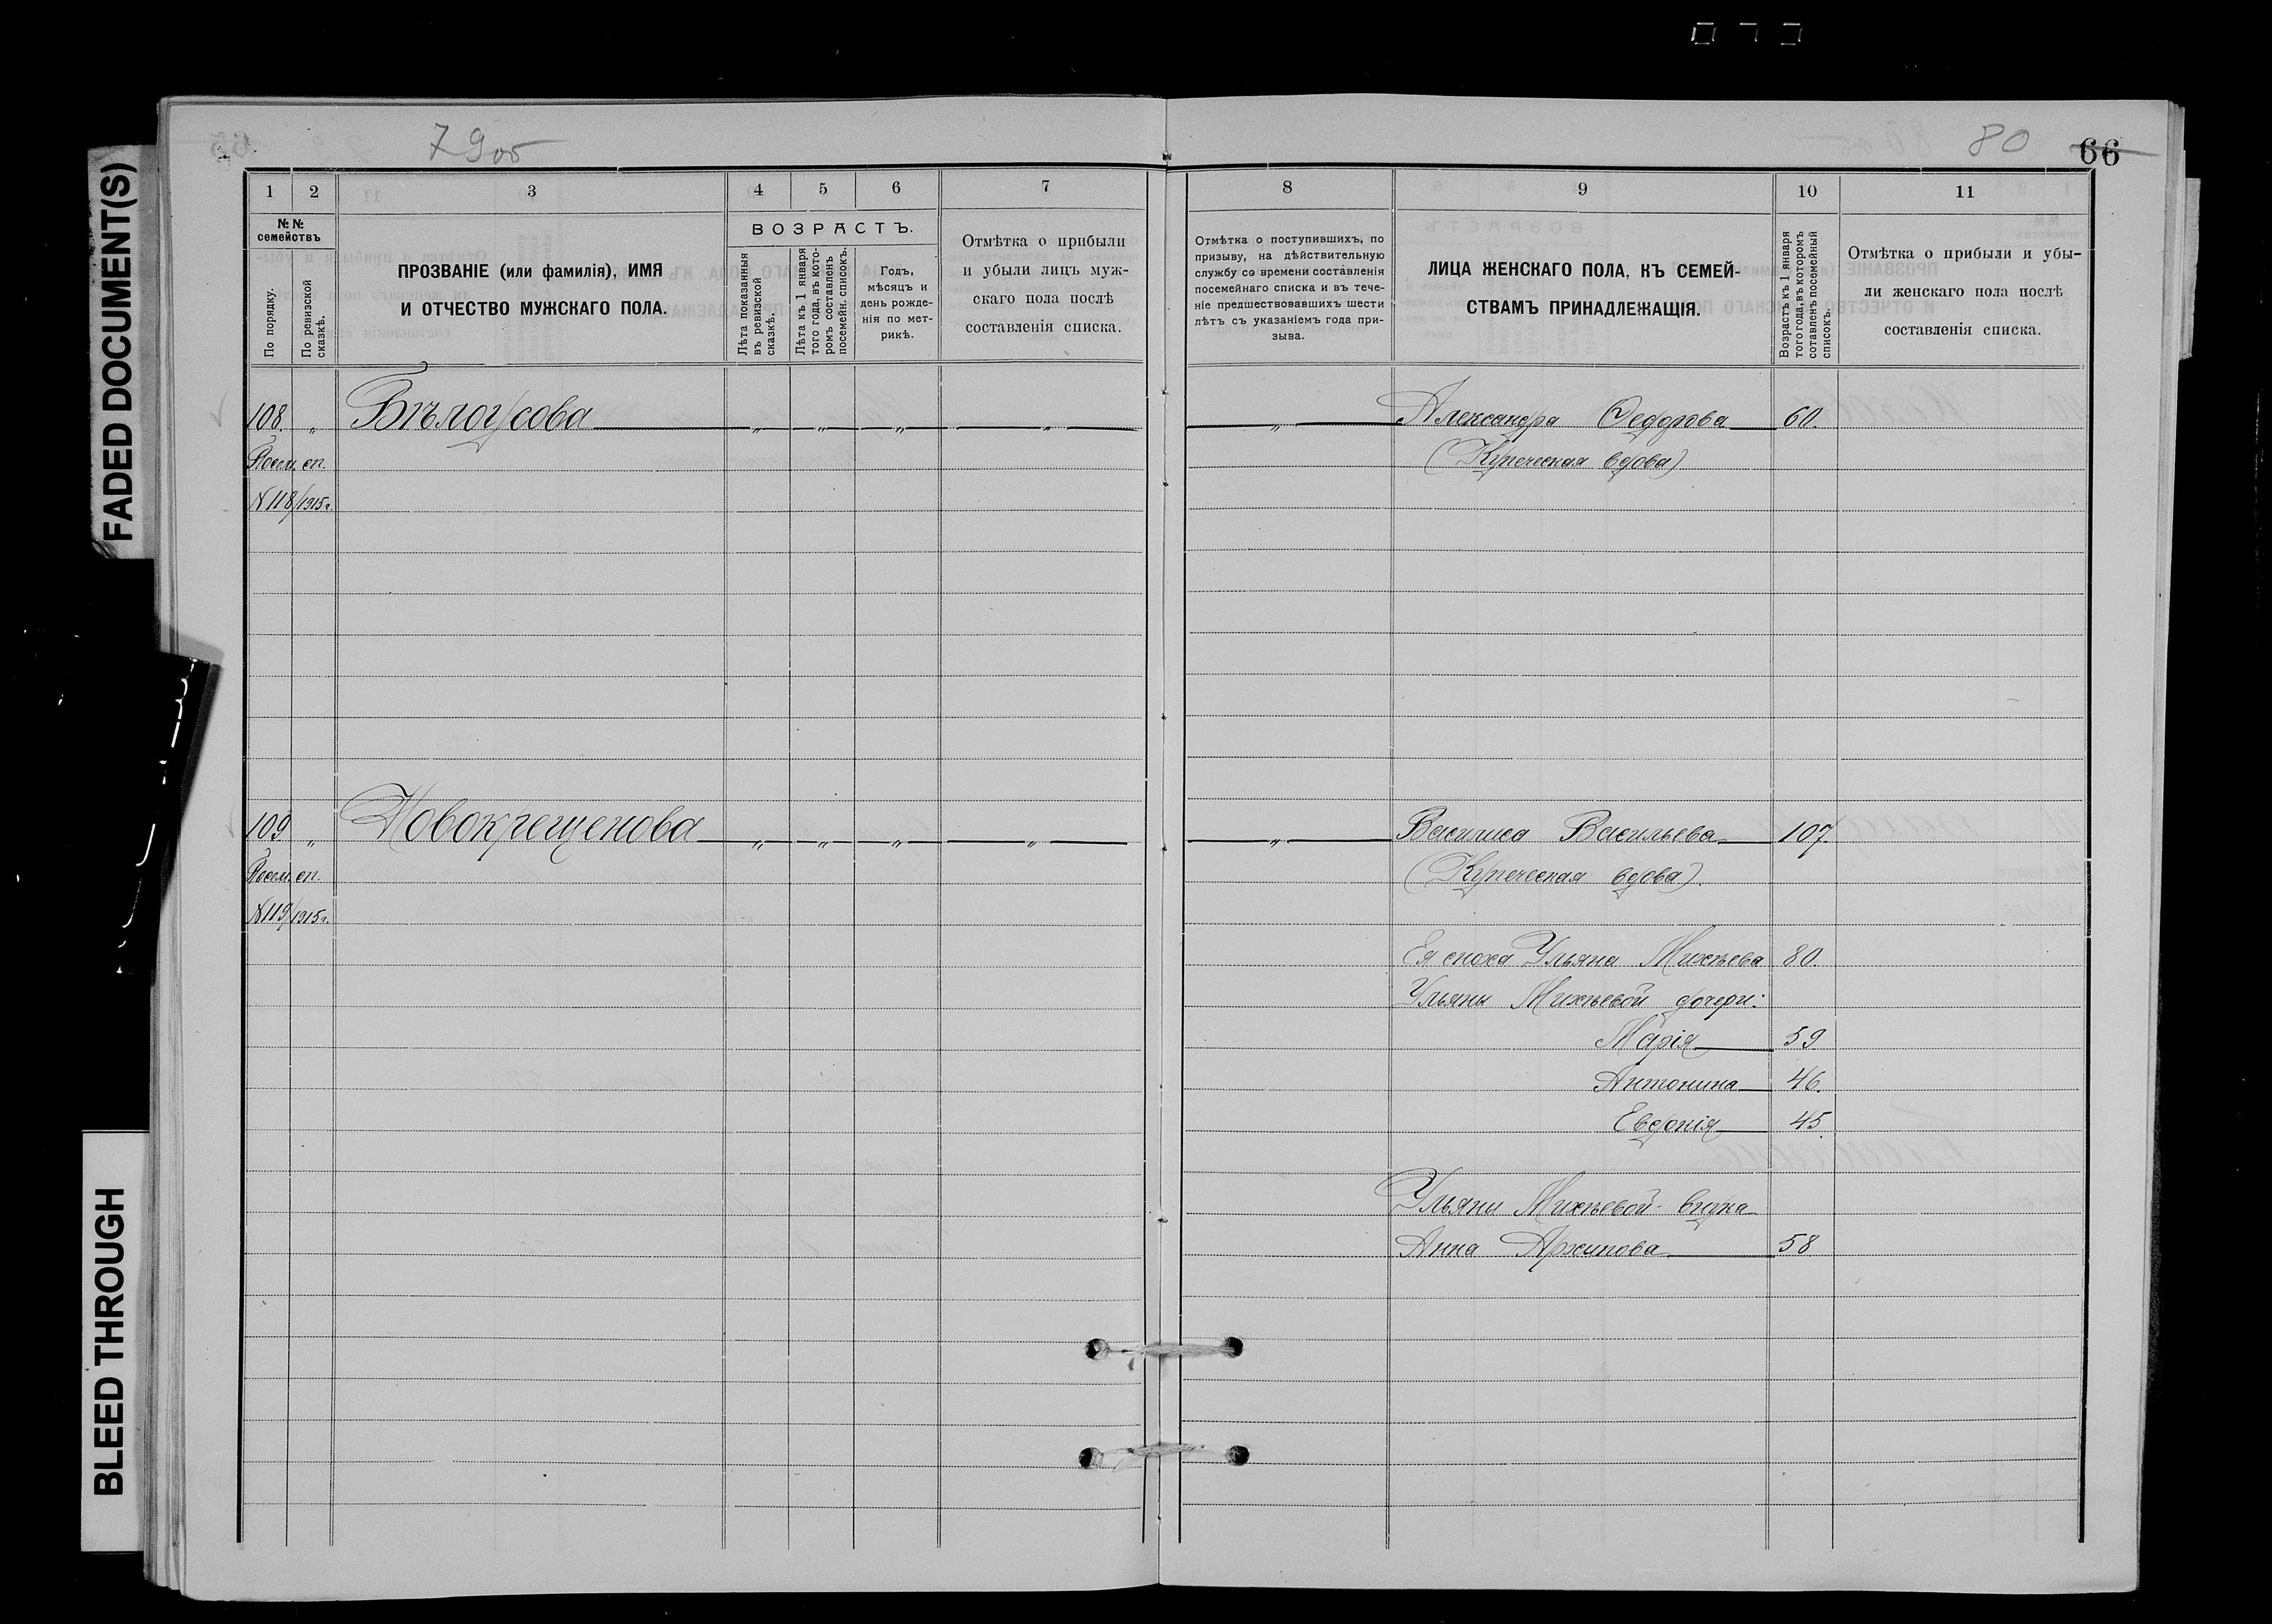 FADED DOCUMENT(S)
BLEED THROUGH
79об
80
66
1 2 3 4 5 6 7
№№ семействъ
По порядку.
По ревизской сказкѣ.
ПРОЗВАНІЕ (или фамилія), ИМЯ
И ОТЧЕСТВО МУЖСКАГО ПОЛА.
ВОЗРАСТЪ.
Лѣта показанныя
въ ревизской
сказкѣ.
Лѣта къ 1 января
того года, въ кото-
ромъ составленъ
посемейн. списокъ.
Годъ,
мѣсяцъ и
день рожде-
нія по мет-
рикѣ.
Отмѣтка о прибыли
и убыли лицъ муж-
скаго пола послѣ
составленія списка.
8 9 10 11
Отмѣтка о поступившихъ, по
призыву, на дѣйствительную
службу со времени составленія
посемейнаго списка и въ тече-
ніе предшествовавшихъ шести
лѣтъ съ указаніемъ года при-
зыва.
ЛИЦА ЖЕНСКАГО ПОЛА, КЪ СЕМЕЙ-
СТВАМЪ ПРИНАДЛЕЖАЩІЯ.
Возрастъ къ 1 января
того года, въ которомъ
соtавленъ посемейный
списокъ.
Отмѣтка о прибыли и убы-
ли женскаго пола послѣ
составленія списка.
108. „ Бѣлоусова „ „ „ „ „ Александра Федорова 60.
Посем. сп. (Купеческая вдова)
№118/1915г.
109 „ Новокрещенова „ „ „ „ „ Василиса Васильева 107.
Посем. сп. (Купеческая вдова).
№119/1915г.
Ея сноха Ульяна Михѣева 80
Ульяны Михѣевой дочери:
Марія 59
Антонина 46.
Евдокія 45.
Ульяны Михѣевой внука
Анна Архипова 58